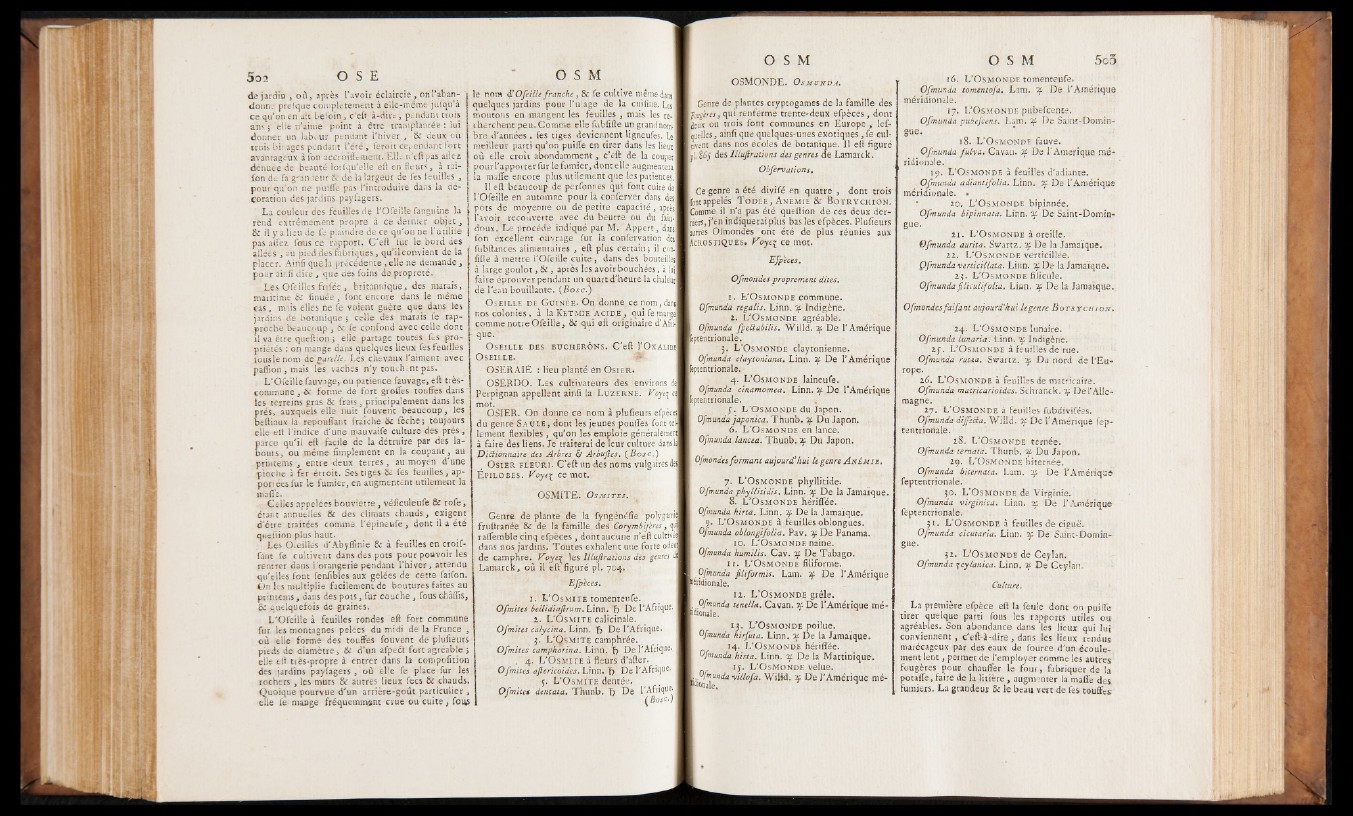 502 O S E
de jardin, où, après l'avoir éclaircie, on l'aban-
donne presque complétement à elle-même jusqu'à
ce qu'on en ait besoin, c'est-à-dire, pendant trois
ans; elle n'aime point à être transplantée : lui
donner un labour pendant l'hiver, & deux ou
trois binages pendant l'été, seroit cependant fort
avantageux à son accroissement. Elle n'est pas assez
dénuée de beauté lorsqu'elle est en fleurs, à rai-
son de sa grandeur & de la largeur de ses feuilles,
pour qu'on ne puisse pas l'introduire dans la dé-
coration des jardins paysagers.
La couleur des feuilles de l'Oseille sanguine la
rend extrêmement propre à ce dernier objet,
& il y a lieu de se plaindre de ce qu'on ne l'utilise
pas assez sous ce rapport. C'est sur le bord des
allées, au pied des fabriques, qu'il convient de la
placer. Ainsi que la précédente, elle ne demande,
pour ainsi dire, que des soins de propreté.
Les Oseilles frisée, britannique, des marais,
maritime & sinuée, sont encore dans le même
cas, mais elles ne se voient guère que dans les
jardins de botanique; celle des marais se rap-
proche beaucoup, & se confond avec celle dont
il va être question; elle partage toutes ses pro-
priétés : on mange dans quelques lieux ses feuilles
sous le nom de parelle. Les chevaux l'aiment avec
passion, mais les vaches n'y touchent pas.
L'Oseille sauvage, ou patience sauvage, est très-
commune, & forme de fort grosses touffes dans
les terreins gras & frais, principalement dans les
prés, auxquels elle nuit souvent beaucoup, les
bestiaux la repoussant fraîche & sèche; toujours
elle est l'indice d'une mauvaise culture des prés,
parce qu'il est facile de la détruire par des la-
bours, ou même simplement en la coupant, au
printems, entre deux terres, au moyen d'une
pioche à fer étroit. Ses tiges & ses feuilles, ap-
portées sur le fumier, en augmentent utilement la
masse.
Celles appelées bouviette, vésiculeuse & rose,
étant annuelles & des climats chauds, exigent
d'être traitées comme l'épineuse, dont il a été
question plus haut.
Les Oseilles d'Abyssinie & à feuilles en crois-
sant se cultivent dans des pots pour pouvoir les
rentrer dans l'orangerie pendant l'hiver, attendu
qu'elles sont sensibles aux gelées de cette saison.
On les multiplie facilement de boutures faites au
printems, dans des pots, sur couche, sous châssis,
& quelquefois de graines.
L'Oseille à feuilles rondes est fort commune
sur les montagnes pelées du midi de la France,
où elle forme des touffes souvent de plusieurs
pieds de diamètre, & d'un aspect fort agréable;
elle est très-propre à entrer dans la composition
des jardins paysagers, où elle se place sur les
rochers, les murs & autres lieux secs & chauds.
Quoique pourvue d'un arrière-goût particulier,
elle se mange fréquemment crue ou cuite, sous
O S M
le nom d'Oseille franche, & se cultive même dans
quelques jardins pour l'usage de la cuisine. Les
moutons en mangent les feuilles, mais les re-
cherchent peu. Comme elle subsiste un grand nom-
bre d'années, les tiges deviennent ligneuses. Le
meilleur parti qu'on puisse en tirer dans les lieux
où elle croît abondamment, c'est de la couper
pour l'apporter sur le fumier, dont elle augmentera
la masse encore plus utilement que les patiences.
Il est beaucoup de personnes qui font cuire de
l'Oseille en automne pour la conserver dans des
pots de moyenne ou de petite capacité, après
l'avoir recouverte avec du beurre ou du sain-
doux. Le procédé indiqué par M. Appert, dans
son excellent ouvrage sur la conservation des
substances alimentaires, est plus certain; il con-
siste à mettre l'Oseille cuite, dans des bouteilles
à large goulot, &, après les avoir bouchées, à lui
faire éprouver pendant un quart d'heure la chaleur
de l'eau bouillante. (Bosc.)
OSEILLE DE GUINÉE. On donne ce nom, dans
nos colonies, à la KETMIE ACIDE, qui se mange
comme notre Oseille, & qui est originaire d'Afri-
que.
OSEILLE DES BUCHERONS. C'est l'OXALIDE
OSEILLE.
OSERAIE : lieu planté en OSIER.
OSERDO. Les cultivateurs des environs de
Perpignan appellent ainsi la LUZERNE. Voyez ce
mot.
OSIER. On donne ce nom à plusieurs espèces
du genre SAULE, dont les jeunes pousses sont tel-
lement flexibles, qu'on les emploie généralement
à faire des liens. Je traiterai de leur culture dans le
Dictionnaire des Arbres & Arbustes. (Bosc.)
OSIER FLEURI. C'est un des noms vulgaires des
ÉPILOBES. Voyez ce mot.
OSMITE. OSMITES.
Genre de plante de la syngénésie polygamie
frustranée & de la famille des Corymbifères, qui
rassemble cinq espèces, dont aucune n'est cultivée
dans nos jardins. Toutes exhalent une forte odeur
de camphre. Voyez les Illustrations des genres de
Lamarck, où il est figuré pl. 704.
Espèces.
1. L'OSMITE tomenteuse.
Osmites bellidiastrum. Linn. ♄ De l'Afrique.
2. L'OSMITE calicinale.
Osmites calycina. Linn. ♄ De l'Afrique.
3. L'OSMITE camphrée.
Osmites camphorina. Linn. ♄ De l'Afrique.
4. L'OSMITE à fleurs d'aster.
Osmites astericoides. Linn. ♄ De l'Afrique.
5. L'OSMITE dentée.
Osmites dentata. Thunb. ♄ De l'Afrique.
(Bosc.)
O S M
OSMONDE. OSMUNDA.
Genre de plantes cryptogames de la famille des
fougères, qui renferme trente-deux espèces, dont
deux ou trois sont communes en Europe, les-
quelles, ainsi que quelques-unes exotiques, se cul-
tivent dans nos écoles de botanique. Il est figuré
pl. 865 des Illustrations des genres de Lamarck.
Observations.
Ce genre a été divisé en quatre, dont trois
sont appelés TODÉE, ANEMIE & BOTRYCHION.
Comme il n'a pas été question de ces deux der-
niers, j'en indiquerai plus bas les espèces. Plusieurs
autres Osmondes ont été de plus réunies aux
ACROSTIQUES. Voyez ce mot.
Espèces.
Osmondes proprement dites.
1. L'OSMONDE commune.
Osmunda regalis. Linn. ♃ Indigène.
2. L'OSMONDE agréable.
Osmunda spectabilis. Willd. ♃ De l'Amérique
septentrionale.
3. L'OSMONDE claytonienne.
Osmunda claytoniana. Linn. ♃ De l'Amérique
septentrionale.
4. L'OSMONDE laineuse.
Osmunda cinamomea. Linn. ♃ De l'Amérique
septentrionale.
5. L'OSMONDE du Japon.
Osmunda japonica. Thunb. ♃ Du Japon.
6. L'OSMONDE en lance.
Osmunda lancea. Thunb. ♃ Du Japon.
Osmondes formant aujourd'hui le genre ANÉMIE.
7. L'OSMONDE phyllitide.
Osmunda phyllitidis. Linn. ♃ De la Jamaïque.
8. L'OSMONDE hérissée.
Osmunda hirta. Linn. ♃ De la Jamaïque.
9. L'OSMONDE à feuilles oblongues.
Osmunda oblongifolia. Pav. ♃ De Panama.
10. L'OSMONDE naine.
Osmunda humilis. Cav. ♃ De Tabago.
11. L'OSMONDE filiforme.
Osmunda filiformis. Lam. ♃ De l'Amérique
méridionale.
12. L'OSMONDE grêle.
Osmunda tenella. Cavan. ♃ De l'Amérique mé-
ridionale.
13. L'OSMONDE poilue.
Osmunda hirsuta. Linn. ♃ De la Jamaïque.
14. L'OSMONDE hérissée.
Osmunda hirta. Linn. ♃ De la Martinique.
15. L'OSMONDE velue.
Osmunda villosa. Willd. ♃ De l'Amérique mé-
ridionale.
O S M 503
16. L'OSMONDE tomenteuse.
Osmunda tomentosa. Lam. ♃ De l'Amérique
méridionale.
17. L'OSMONDE pubescente.
Osmunda pubescens. Lam. ♃ De Saint-Domin-
gue.
18. L'OSMONDE fauve.
Osmunda fulva. Cavan. ♃ De l'Amérique mé-
ridionale.
19. L'OSMONDE à feuilles d'adiante.
Osmunda adiantifolia. Linn. ♃ De l'Amérique
méridionale.
20. L'OSMONDE bipinnée.
Osmunda bipinnata. Linn. ♃ De Saint-Domin-
gue.
21. L'OSMONDE à oreille.
Osmunda aurita. Swartz. ♃ De la Jamaïque.
22. L'OSMONDE verticillée.
Osmunda verticillata. Linn. ♃ De la Jamaïque.
23. L'OSMONDE filicule.
Osmunda filiculifolia. Linn. ♃ De la Jamaïque.
Osmondes faisant aujourd'hui le genre BOTRYCHION.
24. L'OSMONDE lunaire.
Osmunda lunaria. Linn. ♃ Indigène.
25. L'OSMONDE à feuilles de rue.
Osmunda rutea. Swartz. ♃ Du nord de l'Eu-
rope.
26. L'OSMONDE à feuilles de matricaire.
Osmunda matricarioides. Schranck. ♃ De l'Alle-
magne.
27. L'OSMONDE à feuilles subdivisées.
Osmunda dissecta. Willd. ♃ De l'Amérique sep-
tentrionale.
28. L'OSMONDE ternée.
Osmunda ternata. Thunb. ♃ Du Japon.
29. L'OSMONDE biternée.
Osmunda biternata. Lam. ♃ De l'Amérique
septentrionale.
30. L'OSMONDE de Virginie.
Osmunda virginica. Linn. ♃ De l'Amérique
septentrionale.
31. L'OSMONDE à feuilles de ciguë.
Osmunda cicutaria. Linn. ♃ De Saint-Domin-
gue.
32. L'OSMONDE de Ceylan.
Osmunda zeylanica. Linn. ♃ De Ceylan.
Culture.
La première espèce est la seule dont on puisse
tirer quelque parti sous les rapports utiles ou
agréables. Son abondance dans les lieux qui lui
conviennent, c'est-à-dire, dans les lieux rendus
marécageux par des eaux de source d'un écoule-
ment lent, permet de l'employer comme les autres
fougères pour chauffer le four, fabriquer de la
potasse, faire de la litière, augmenter la masse des
fumiers. La grandeur & le beau vert de ses touffes